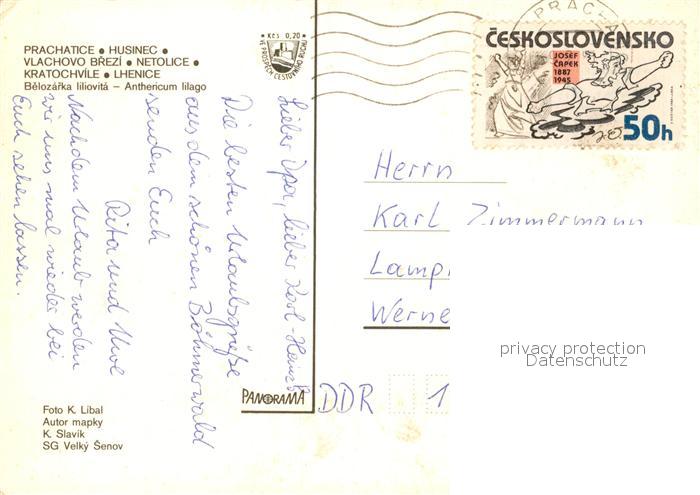 PRACHATICE ● HUSINEC ●
VLACHOVO BŘEZÍ ● NETOLICE ●
KRATOCHVÍLE ● LHENICE
Bělozářka liliovitá – Anthericum lilago
Kčs 0,20
VE PROSPĚCH CESTOVNÍHO RUCHU
PRACHA
ČESKOSLOVENSKO
JOSEF
ČAPEK
1887
1945
50h
Lieber Opa, lieber Karl-Heinz
Die besten Urlaubsgrüße
aus dem schönen Böhmerwald
senden Euch
Rita und Uwe
Nachdem Urlaub werden
wir uns mal wieder bei
Euch sehen lassen.
Herrn
Karl Zimmermann
Lamp
Werne
DDR 1
PANORAMA
Foto K. Líbal
Autor mapky
K. Slavík
SG Velký Šenov
privacy protection
Datenschutz